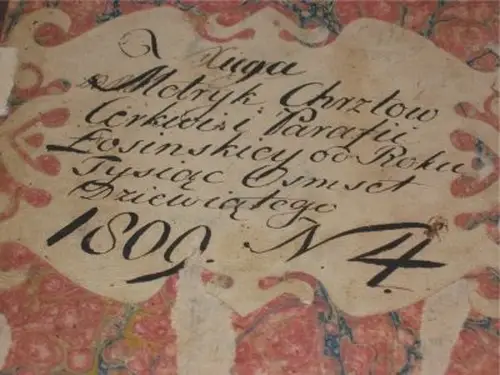 Xięga
Metryk Chrztow
Cerkwi i Parafii
Łosinskiey od Roku
Tysiąc Osmset
Dziewiątego
1809. N. 4.